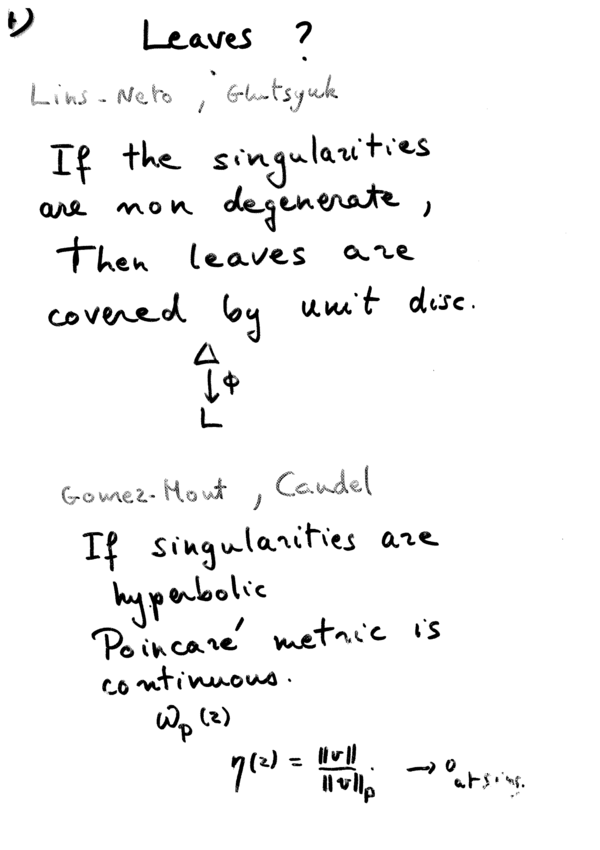 1)
Leaves ?
Lins-Neto, Glutsyuk
If the singularities
are non degenerate,
Then leaves are
covered by unit disc.
Δ
↓ φ
L
Gomez-Mont, Candel
If singularities are
hyperbolic
Poincaré metric is
continuous.
ω_p(z)
η(z) = ‖v‖ / ‖v‖_p → 0 at sing.